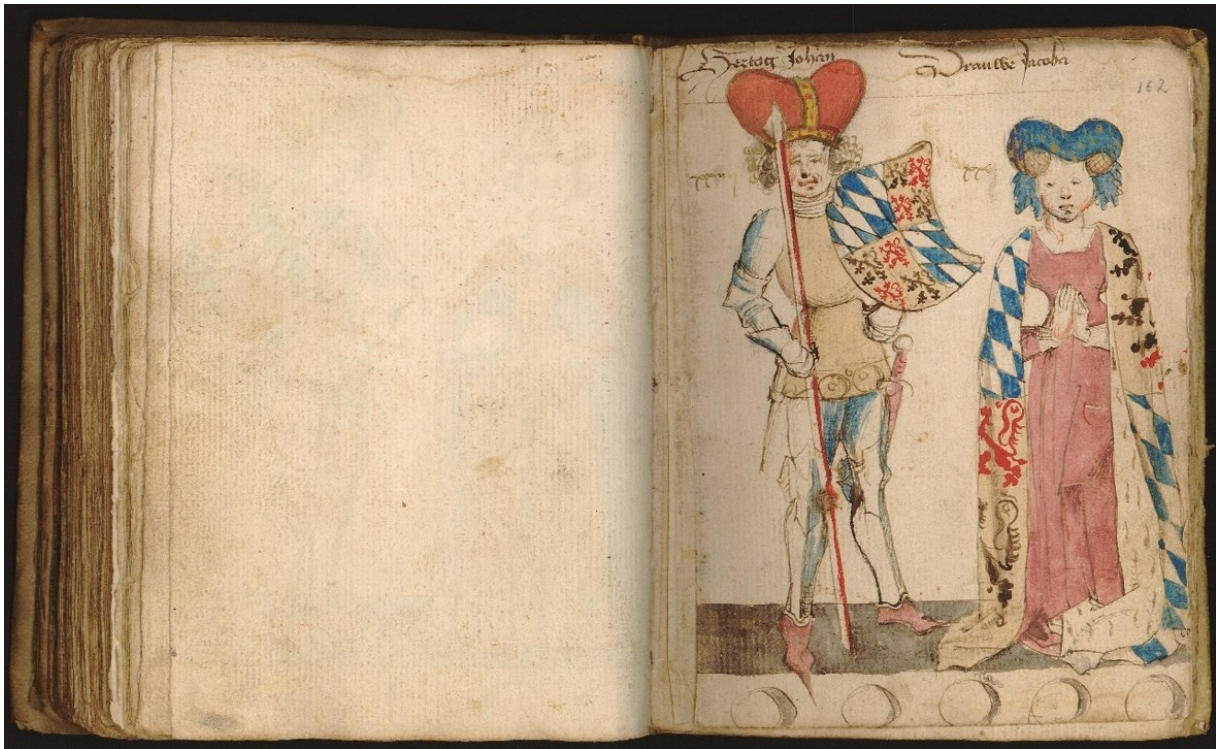 Hertog Johan Vrauwe Jacoba
162